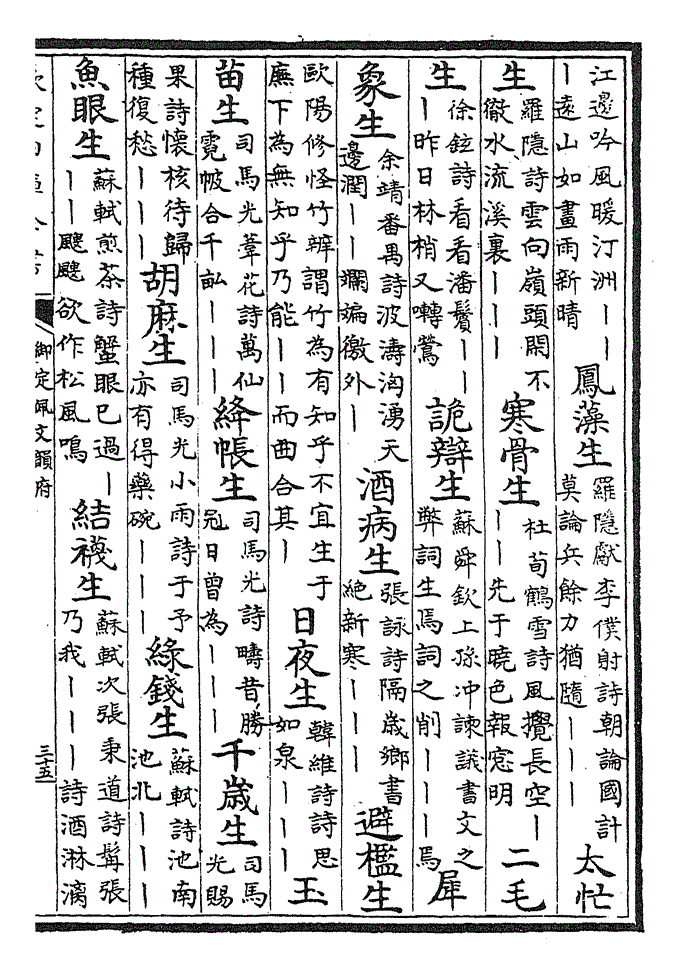 江邊吟風暖汀洲丨丨
丨遠山如畫雨新晴
鳳藻生
羅隱獻李僕射詩朝論國計
莫論兵餘力猶隨丨丨丨
太忙
生
羅隱詩雲向嶺頭閑不
徹水流溪裏丨丨丨
寒骨生
杜荀鶴雪詩風攪長空丨
丨丨先于曉色報窻明
二毛
生
徐鉉詩看看潘鬢丨丨
丨昨日林梢又囀鶯
詭辯生
蘇舜欽上孫冲諫議書文之
弊詞生焉詞之削丨丨丨焉
犀
象生
余靖番禺詩波濤洶湧天
邊濶丨丨斕斒徼外丨
酒病生
張詠詩隔歲鄉書
絶新寒丨丨丨
避檻生
歐陽修怪竹辨謂竹為有知乎不宜生于
廡下為無知乎乃能丨丨而曲合其丨
日夜生
韓維詩詩思
如泉丨丨丨
玉
苗生
司馬光葦花詩萬仙
霓帔合千畝丨丨丨
絳帳生
司馬光詩疇昔勝
冠日曾為丨丨丨
千歲生
司馬
光賜
果詩懷核待歸
種復愁丨丨丨
胡麻生
司馬光小雨詩于予
亦有得藥碗丨丨丨
綠錢生
蘇軾詩池南
池北丨丨丨
魚眼生
蘇軾煎茶詩蟹眼巳過丨
丨丨颼颼欲作松風鳴
結襪生
蘇軾次張秉道詩髯張
乃我丨丨丨詩酒淋漓
御定佩文韻府
三十五